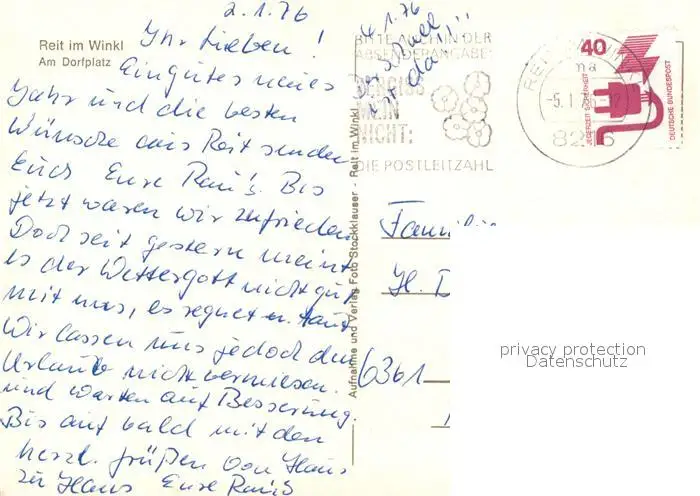 2.1.76
Reit im Winkl
Am Dorfplatz
Ihr Lieben!
Ein gutes neues
Jahr und die besten
Wünsche aus Reit senden
Euch Eure Rau's. Bis
jetzt waren wir zufrieden
Doch seit gestern meint
es der Wettergott nicht gut
mit uns, es regnet u. taut
Wir lassen uns jedoch den
Urlaub nicht vermiesen.
und warten auf Besserung.
Bis auf bald mit den
herzl. Grüßen von Haus
zu Haus Eure Rau's
4.1.76
Der Schnee
ist da!!!
Aufnahme und Verlag Foto Stockklauser - Reit im Winkl
BITTE AUCH IN DER
ABSENDERANGABE:
VERGISS
MEIN
NICHT:
DIE POSTLEITZAHL
REIT IM WINKL
-5.1.76-17
8216
40
JEDERZEIT SICHERHEIT
DEUTSCHE BUNDESPOST
Familie
H.
6361
privacy protection
Datenschutz